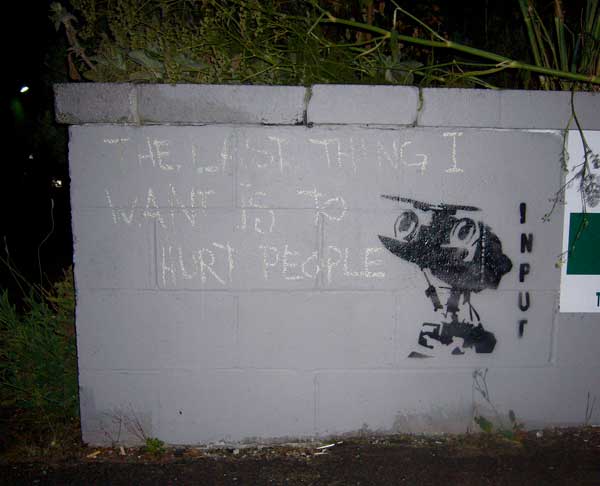 THE LAST THING I
WANT IS TO
HURT PEOPLE
INPUT
T